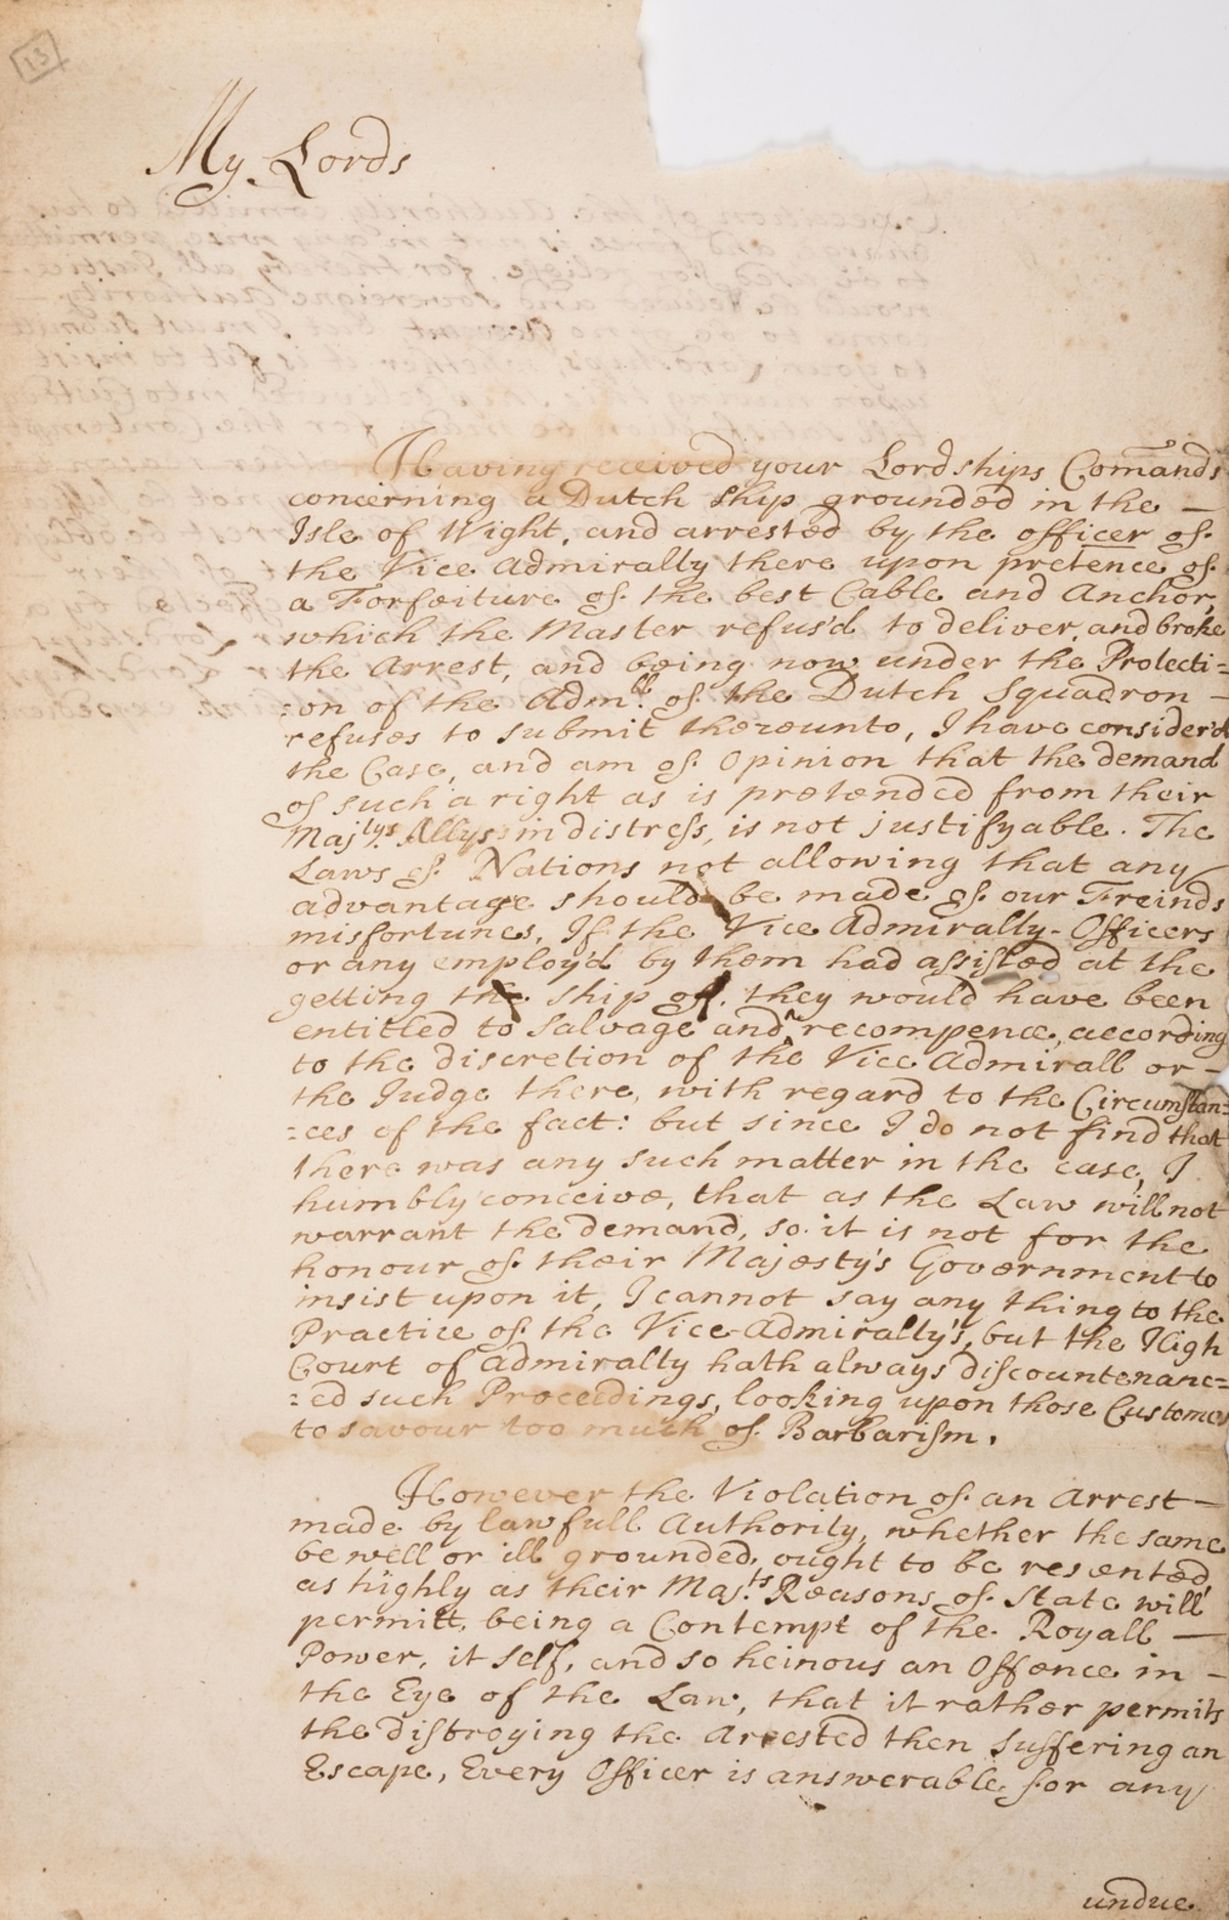 13
My Lords
Having received your Lordships Comands
concerning a Dutch ship grounded in the —
Isle of Wight, and arrested by the officer of
the Vice Admirally there upon pretence of
a Forfeiture of the best Cable and Anchor,
which the Master refus'd to deliver, and broke
the Arrest, and being now under the Protecti=
:on of the Adm:ll of the Dutch Squadron —
refuses to submit thereunto, I have consider'd
the Case, and am of Opinion that the demand
of such a right as is pretended from their
Maj:tys Allys in distress, is not justifyable. The
Laws of Nations not allowing that any
advantage should be made of our Freinds
misfortunes, If the Vice Admirally-Officers
or any employ'd by them had assisted at the
getting the ship off, they would have been
entitled to Salvage and recompence, according
to the discretion of the Vice Admirall or —
the Judge there, with regard to the Circumstan=
:ces of the fact: but since I do not find that
there was any such matter in the case, I
humbly conceive, that as the Law will not
warrant the demand, so it is not for the
honour of their Majesty's Government to
insist upon it, I cannot say any thing to the
Practice of the Vice-Admirally's, but the High
Court of Admiralty hath always discountenanc=
:ed such Proceedings, looking upon those Customes
to savour too much of Barbarism.
However the Violation of an Arrest —
made by lawfull Authority, whether the same
be well or ill grounded, ought to be resented
as highly as their Maj:ts Reasons of State will
permitt, being a Contempt of the Royall —
Power, it self, and so heinous an Offence in —
the Eye of the Law, that it rather permits
the distroying the Arrested then suffering an
Escape, Every Officer is answerable for any
undue